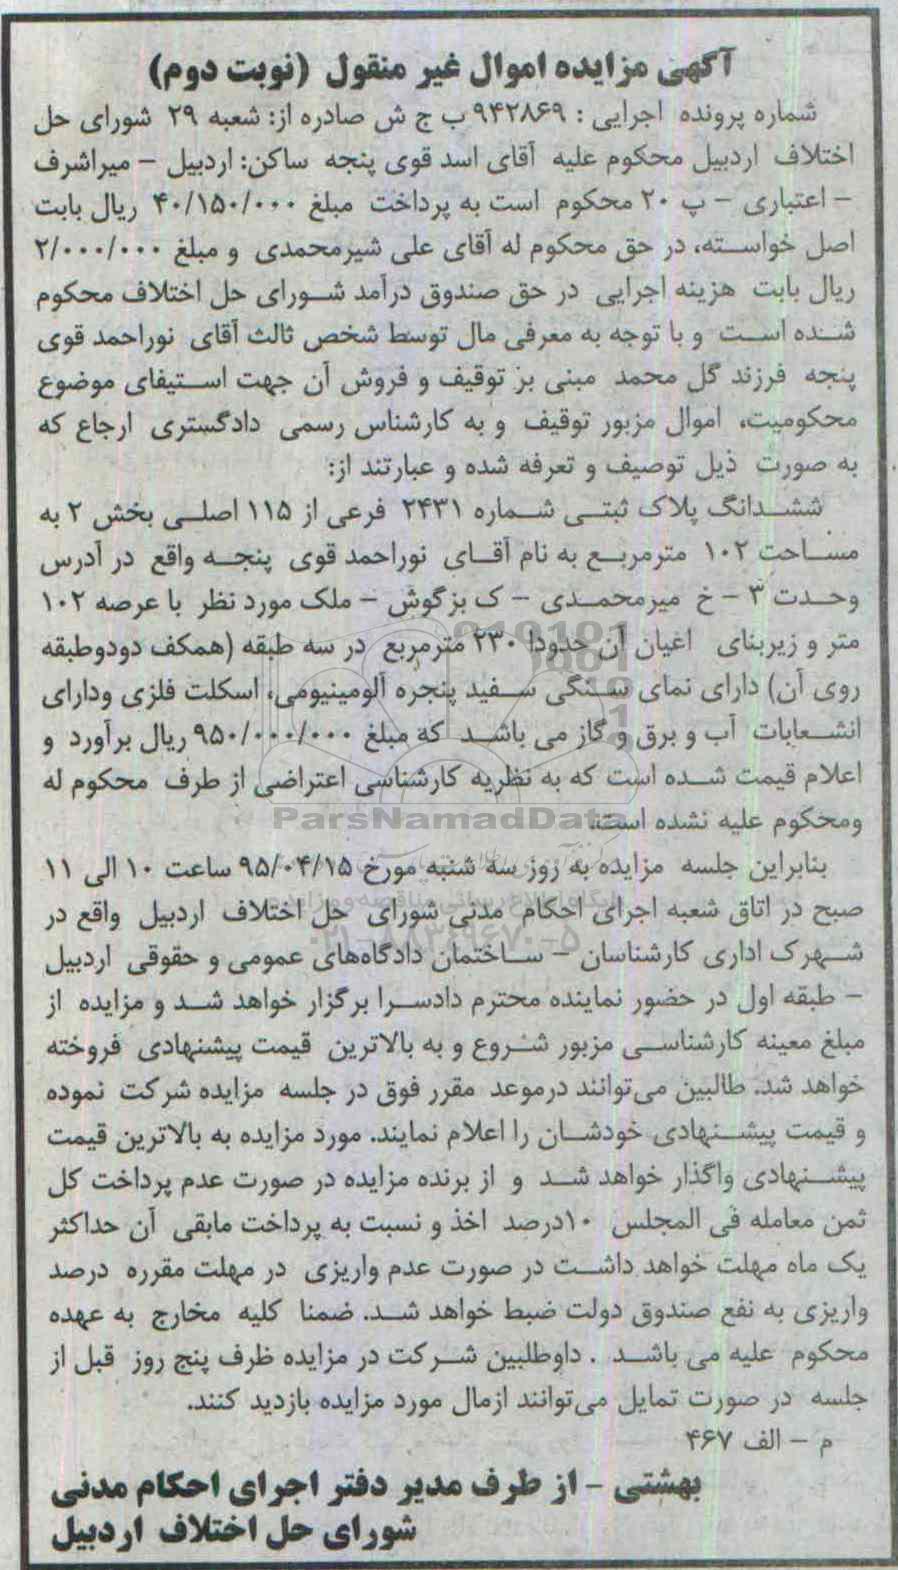 آگهی مزایده اموال غیر منقول (نوبت دوم)
شماره پرونده اجرایی : ۹۴۲۸۶۹ ب ج ش صادره از: شعبه ۲۹ شورای حل
اختلاف اردبیل محکوم علیه آقای اسد قوی پنجه ساکن: اردبیل – میراشرف
– اعتباری – پ ۲۰ محکوم است به پرداخت مبلغ ۴۰/۱۵۰/۰۰۰ ریال بابت
اصل خواسته، در حق محکوم له آقای علی شیرمحمدی و مبلغ ۲/۰۰۰/۰۰۰
ریال بابت هزینه اجرایی در حق صندوق درآمد شورای حل اختلاف محکوم
شده است و با توجه به معرفی مال توسط شخص ثالث آقای نوراحمد قوی
پنجه فرزند گل محمد مبنی بر توقیف و فروش آن جهت استیفای موضوع
محکومیت، اموال مزبور توقیف و به کارشناس رسمی دادگستری ارجاع که
به صورت ذیل توصیف و تعرفه شده و عبارتند از:
ششدانگ پلاک ثبتی شماره ۲۴۳۱ فرعی از ۱۱۵ اصلی بخش ۲ به
مساحت ۱۰۲ مترمربع به نام آقای نوراحمد قوی پنجه واقع در آدرس
وحدت ۳ – خ میرمحمدی – ک بزگوش – ملک مورد نظر با عرصه ۱۰۲
متر و زیربنای اعیان آن حدودا ۲۳۰ مترمربع در سه طبقه (همکف دودوطبقه
روی آن) دارای نمای سنگی سفید پنجره آلومینیومی، اسکلت فلزی ودارای
انشعابات آب و برق و گاز می باشد که مبلغ ۹۵۰/۰۰۰/۰۰۰ ریال برآورد و
اعلام قیمت شده است که به نظریه کارشناسی اعتراضی از طرف محکوم له
ومحکوم علیه نشده است.
ParsNamadData
بنابراین جلسه مزایده به روز سه شنبه مورخ ۹۵/۰۴/۱۵ ساعت ۱۰ الی ۱۱
صبح در اتاق شعبه اجرای احکام مدنی شورای حل اختلاف اردبیل واقع در
شهرک اداری کارشناسان – ساختمان دادگاه‌های عمومی و حقوقی اردبیل
– طبقه اول در حضور نماینده محترم دادسرا برگزار خواهد شد و مزایده از
مبلغ معینه کارشناسی مزبور شروع و به بالاترین قیمت پیشنهادی فروخته
خواهد شد. طالبین می‌توانند درموعد مقرر فوق در جلسه مزایده شرکت نموده
و قیمت پیشنهادی خودشان را اعلام نمایند. مورد مزایده به بالاترین قیمت
پیشنهادی واگذار خواهد شد و از برنده مزایده در صورت عدم پرداخت کل
ثمن معامله فی المجلس ۱۰درصد اخذ و نسبت به پرداخت مابقی آن حداکثر
یک ماه مهلت خواهد داشت در صورت عدم واریزی در مهلت مقرره درصد
واریزی به نفع صندوق دولت ضبط خواهد شد. ضمنا کلیه مخارج به عهده
محکوم علیه می باشد . داوطلبین شرکت در مزایده ظرف پنج روز قبل از
جلسه در صورت تمایل می‌توانند ازمال مورد مزایده بازدید کنند.
م – الف ۴۶۷
بهشتی – از طرف مدیر دفتر اجرای احکام مدنی
شورای حل اختلاف اردبیل